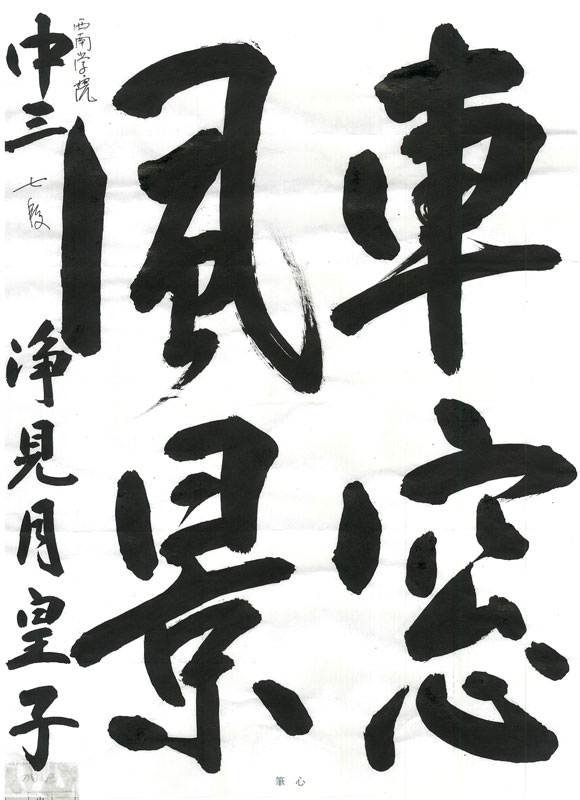 車窓
風景
西南学院
中三 七段 浄見月皇子
筆心